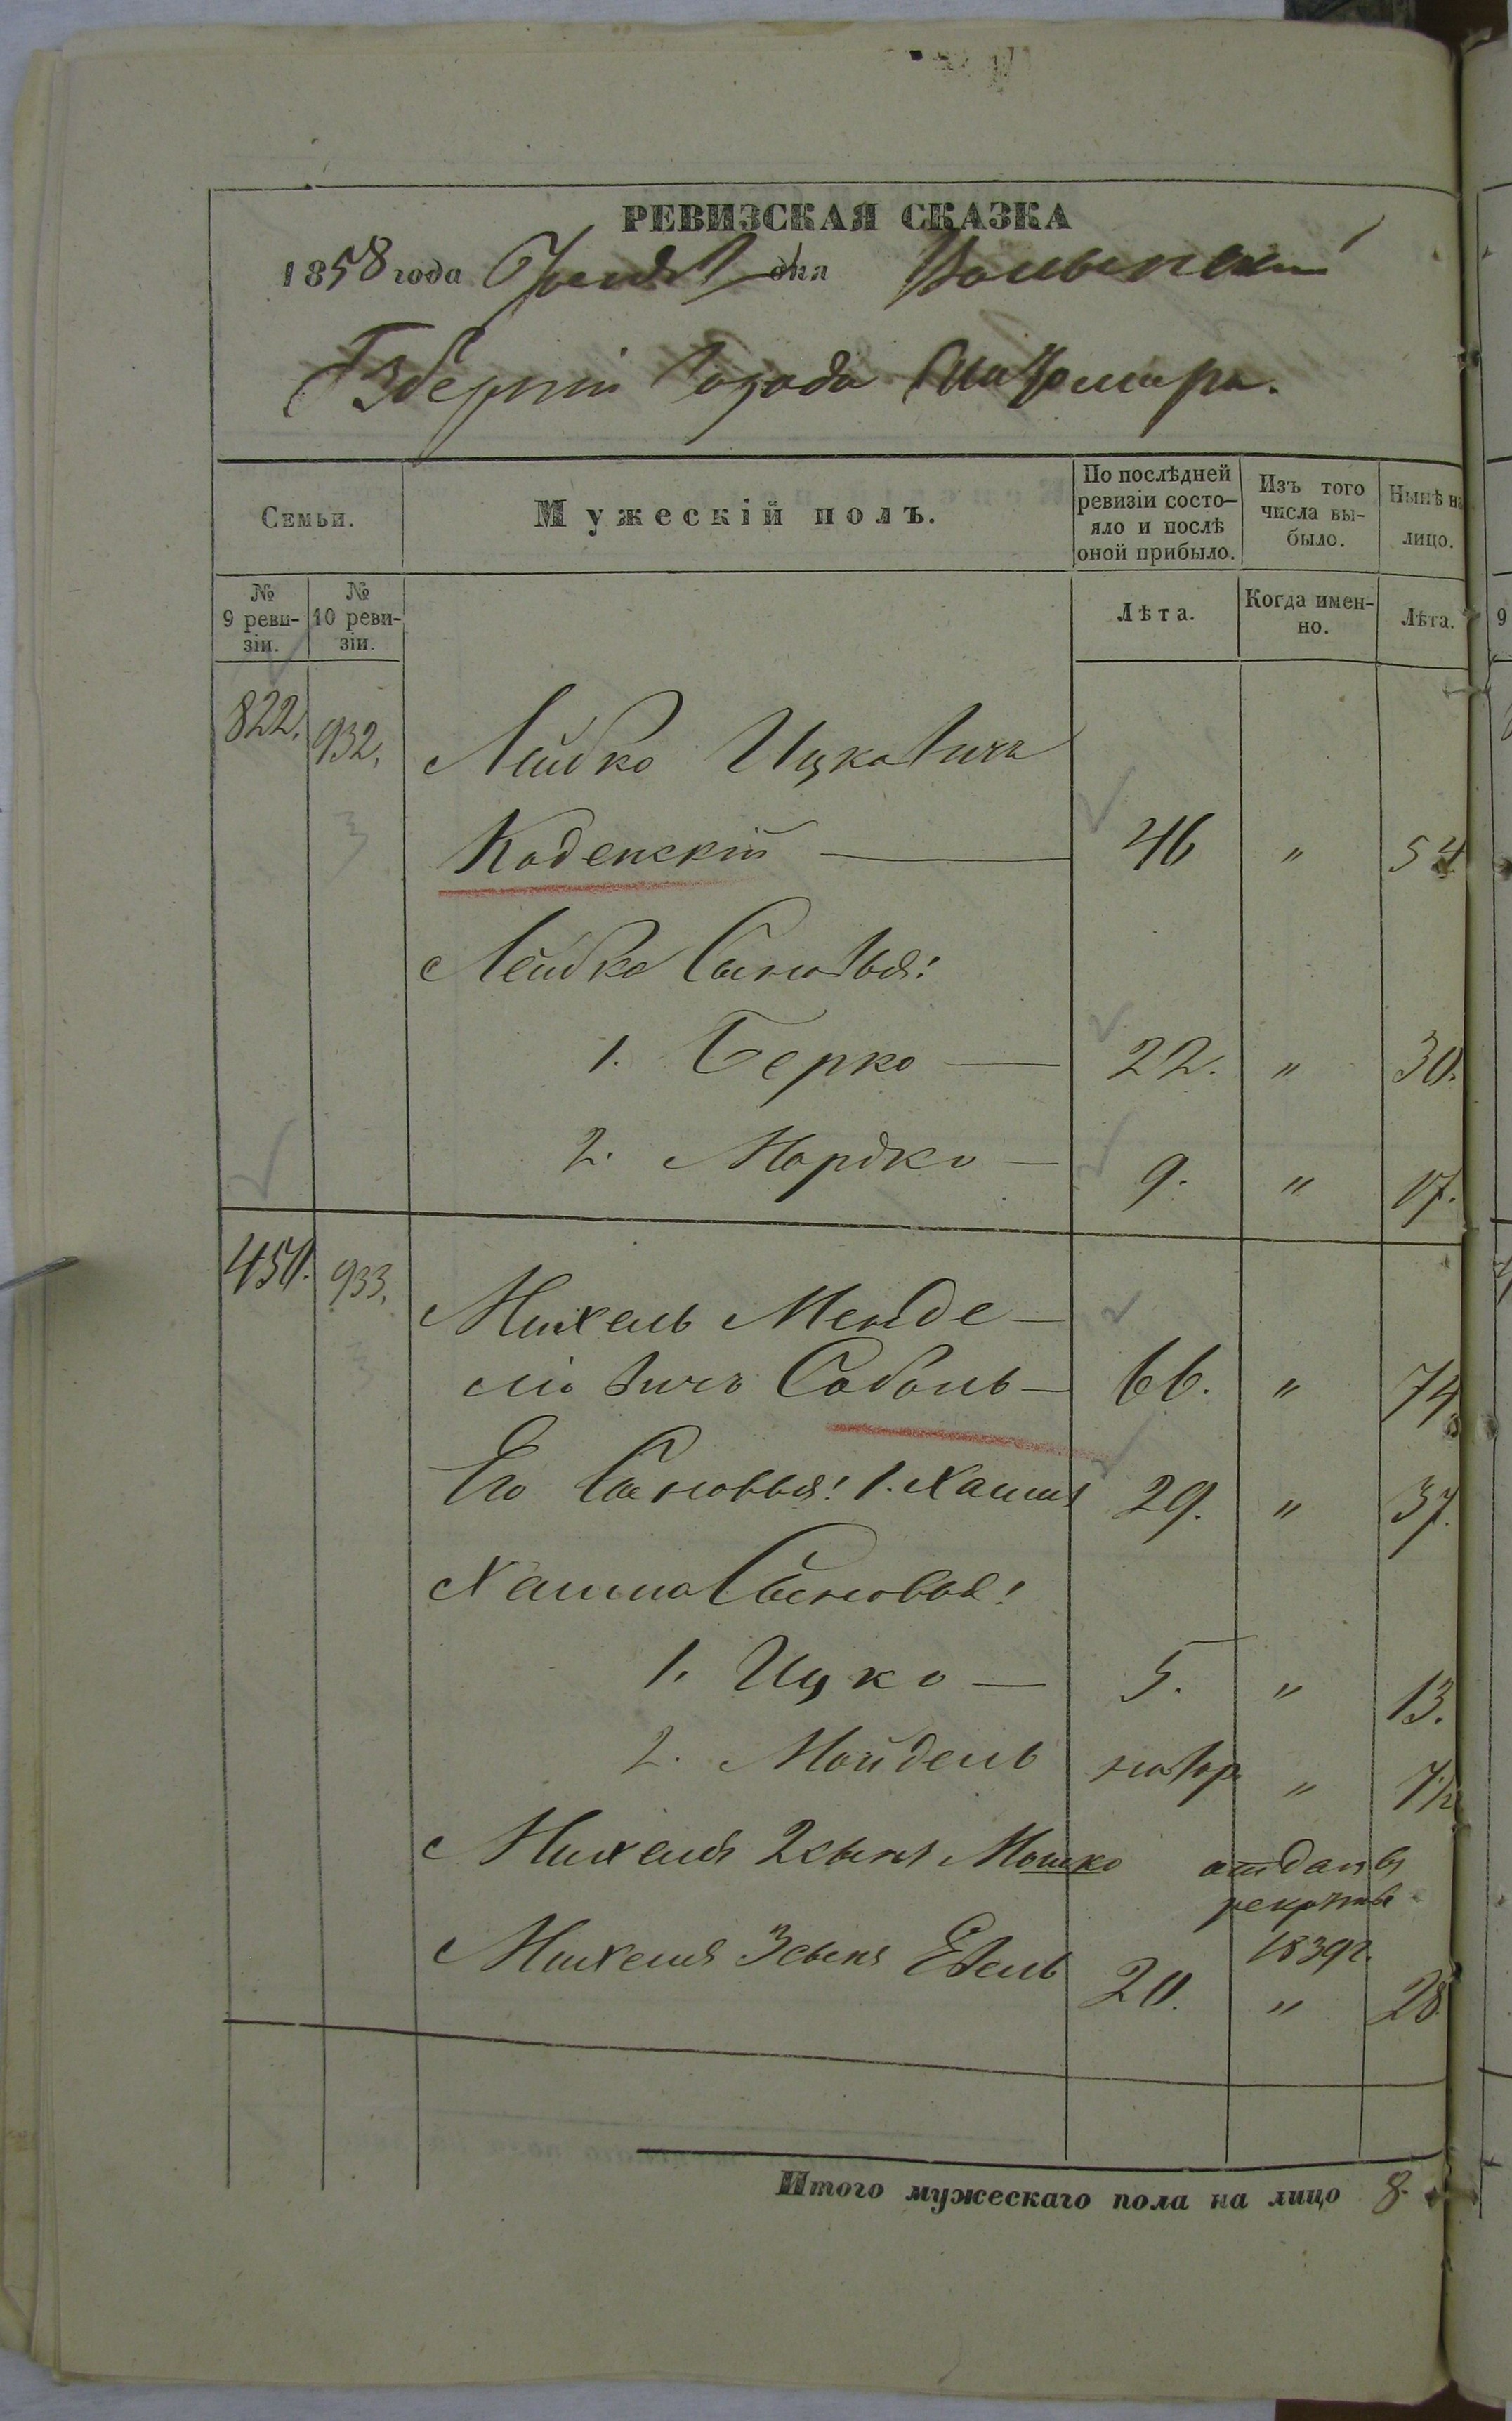 РЕВИЗСКАЯ СКАЗКА
1858 года Іюня 1 дня Волынской
Губерніи Города Житомира.
Семьи.
Мужескій полъ.
По послѣдней ревизіи состо-
яло и послѣ
оной прибыло.
Изъ того
числа вы-
было.
Нынѣ на
лицо.
№
9 реви-
зіи.
№
10 реви-
зіи.
Лѣта.
Когда имен-
но.
Лѣта.
822. 932. Лейбко Ицковичъ
Коденскій — 46 " 54
Лейбка Сыновья:
1. Берко — 22. " 30.
2. Мордко — 9. " 17.
450. 933. Михель Менде-
лiовичъ Соболь — 66. " 74
Его Сыновья: 1. Хаимъ 29. " 37.
Хаима Сыновья:
1. Ицко — 5. " 13.
2. Мойдель новор. " 7½
Михеля 2 сынъ Мошко отданъ въ
рекруты
1839г.
Михеля 3 сынъ 20. " 28
Итого мужескаго пола на лицо 8.